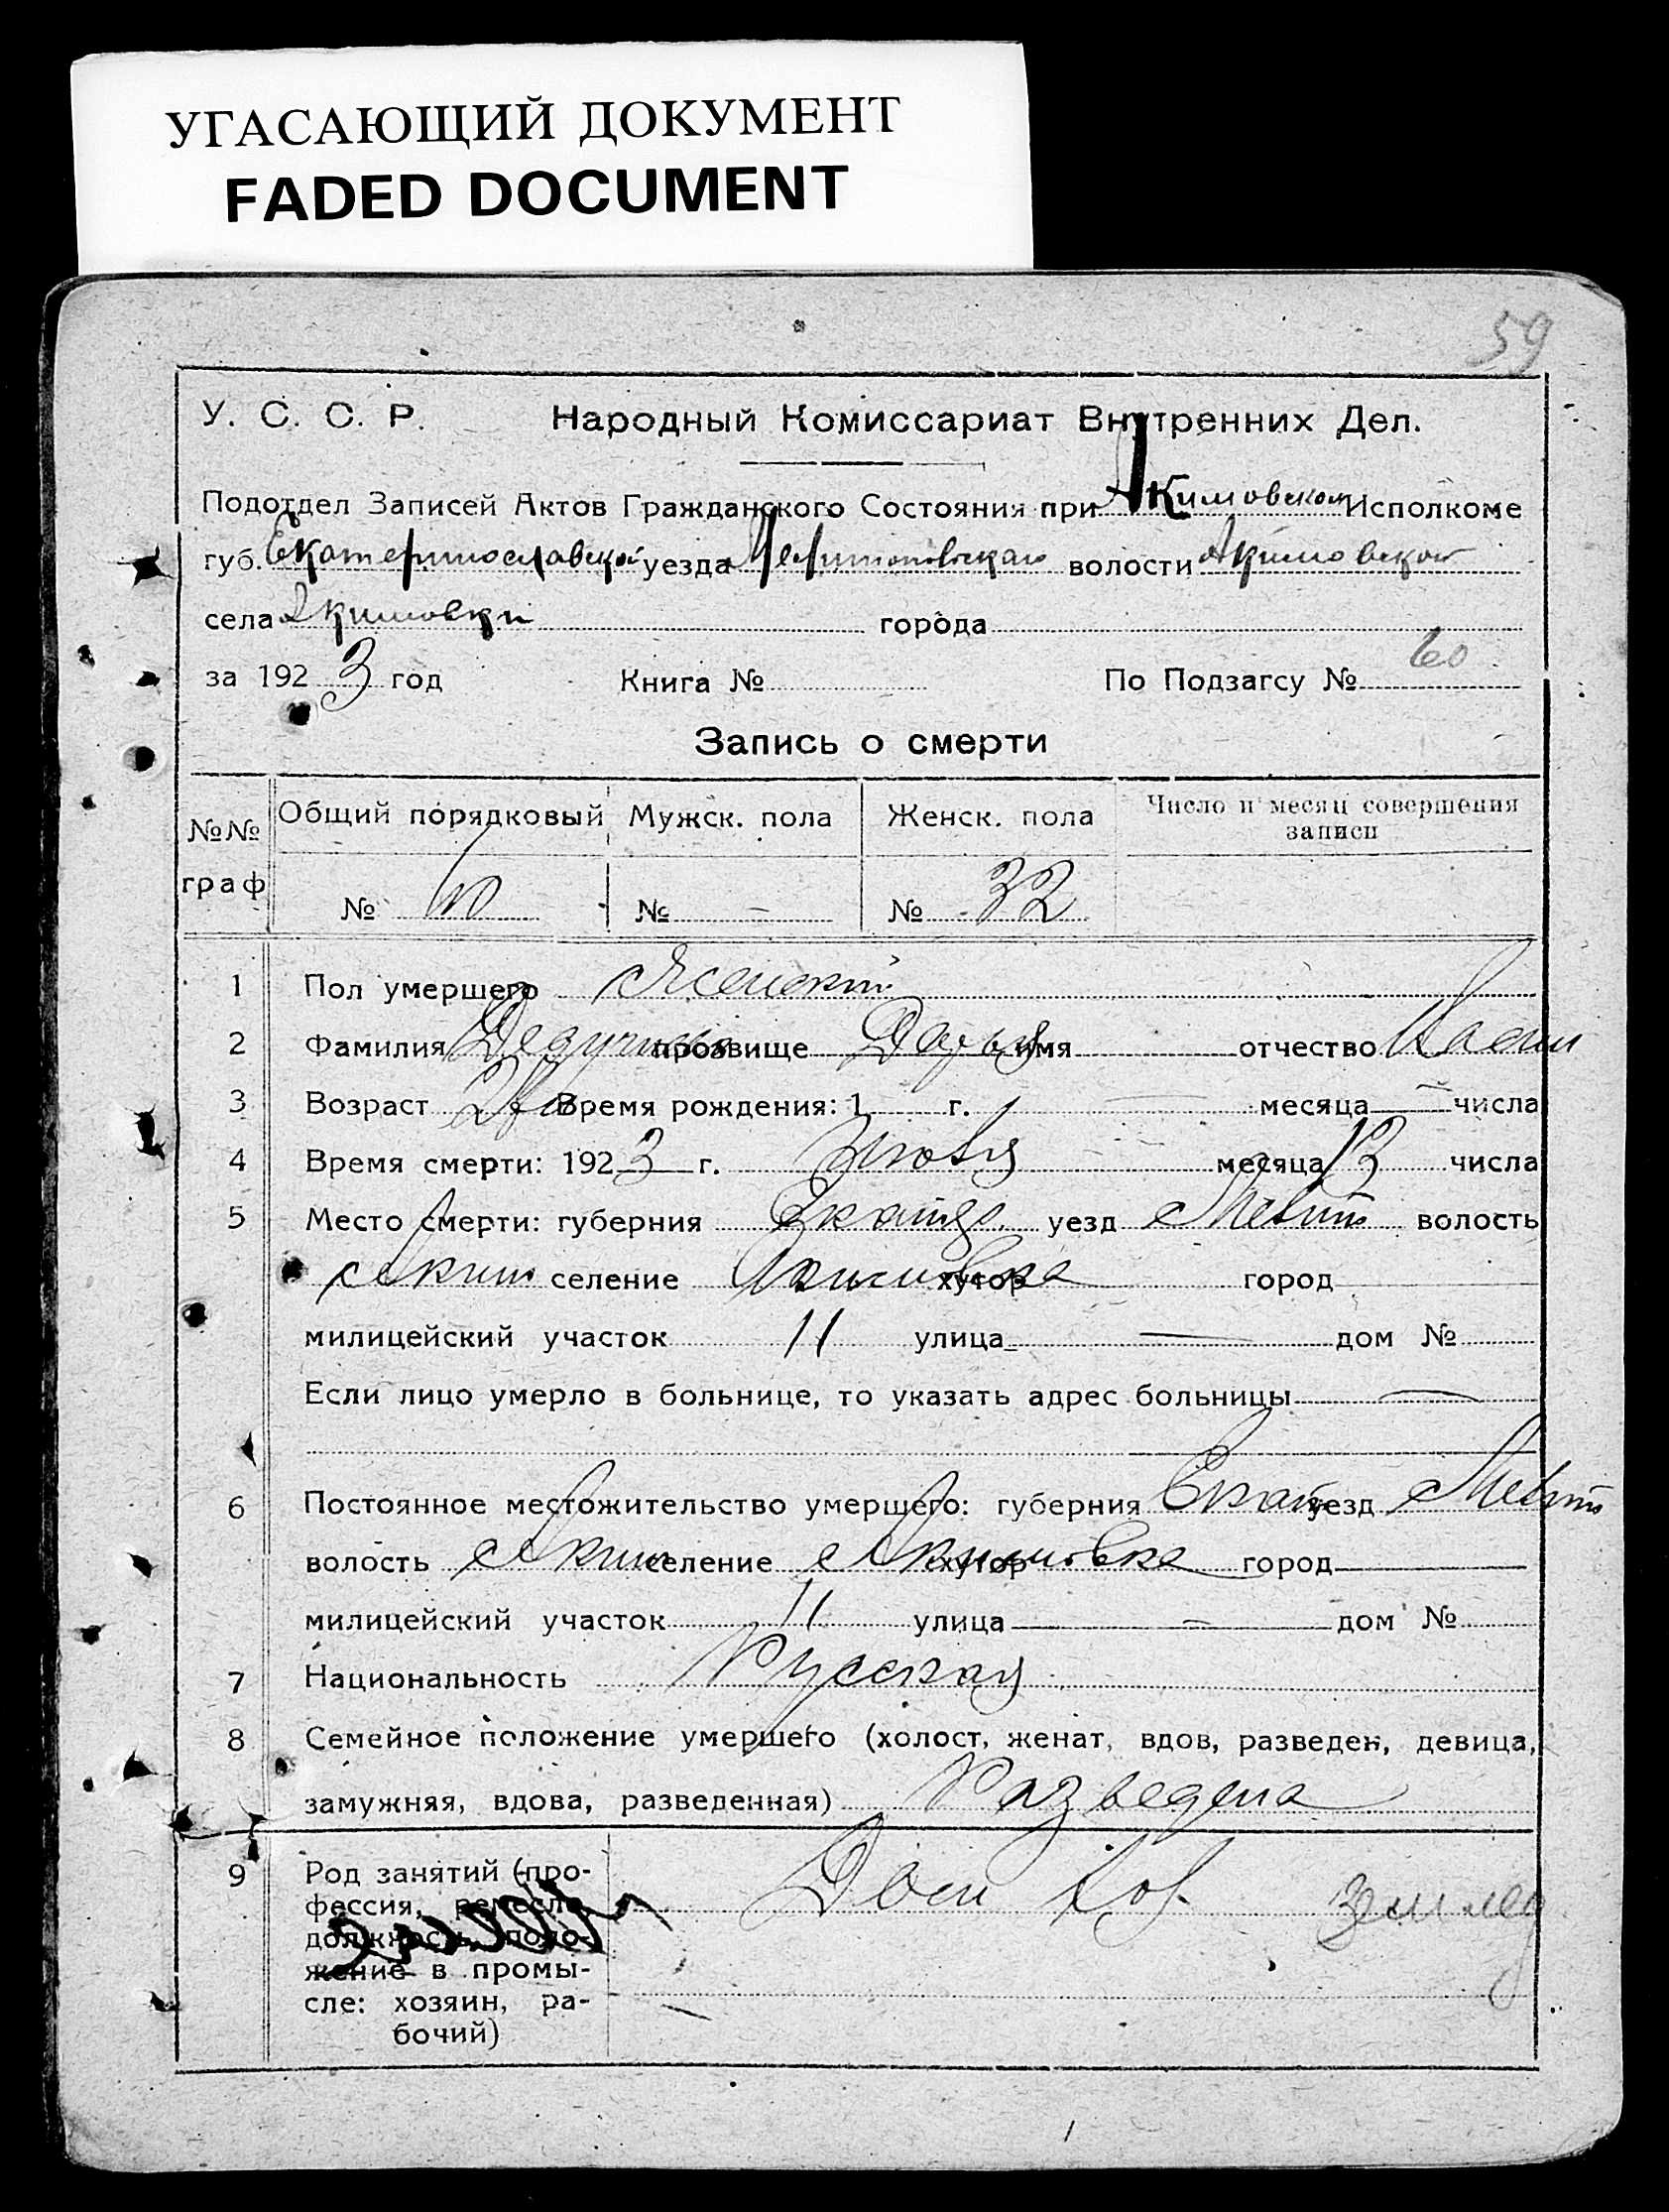 УГАСАЮЩИЙ ДОКУМЕНТ
FADED DOCUMENT
59
У. С. С. Р. Народный Комиссариат Внутренних Дел.
Подотдел Записей Актов Гражданского Состояния при Акимовском Исполкоме
губ. Екатеринославской уезда Мелитопольскаго волости Акимовской
села Акимовки города
за 1923 год Книга № По Подзагсу № 60
Запись о смерти
№№ граф Общий порядковый Мужск. пола Женск. пола Число и месяц совершения записи
№ 60 № - № 32
1 Пол умершего Женский
2 Фамилия прозвище Дарья имя отчество
3 Возраст Время рождения: 1 г. — месяца — числа
4 Время смерти: 1923 г. месяца 13 числа
5 Место смерти: губерния уезд Мелит волость
Аким селение Акимовка хутор город
милицейский участок 11 улица — дом №
Если лицо умерло в больнице, то указать адрес больницы —
6 Постоянное местожительство умершего: губерния Екат уезд Мелит
волость Аким селение Акимовка хутор город
милицейский участок 11 улица — дом №
7 Национальность Русская
8 Семейное положение умершего (холост, женат, вдов, разведен, девица,
замужняя, вдова, разведенная) Разведена
9 Род занятий (про- Дом хоз. землед
фессия, ремесло,
должность, поло-
жение в промы-
сле: хозяин, ра-
бочий)